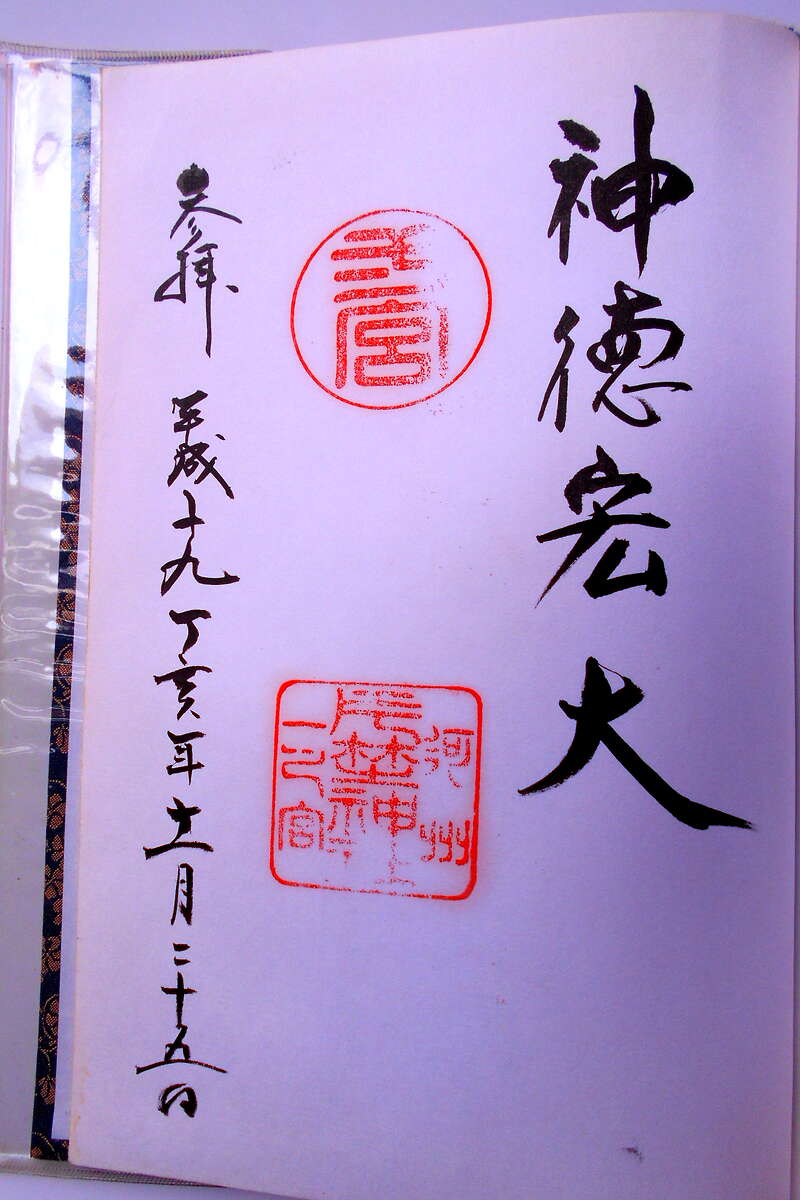 神徳宏大
河州
片埜神社
一之宮
参拝 平成十九丁亥年十一月二十五日